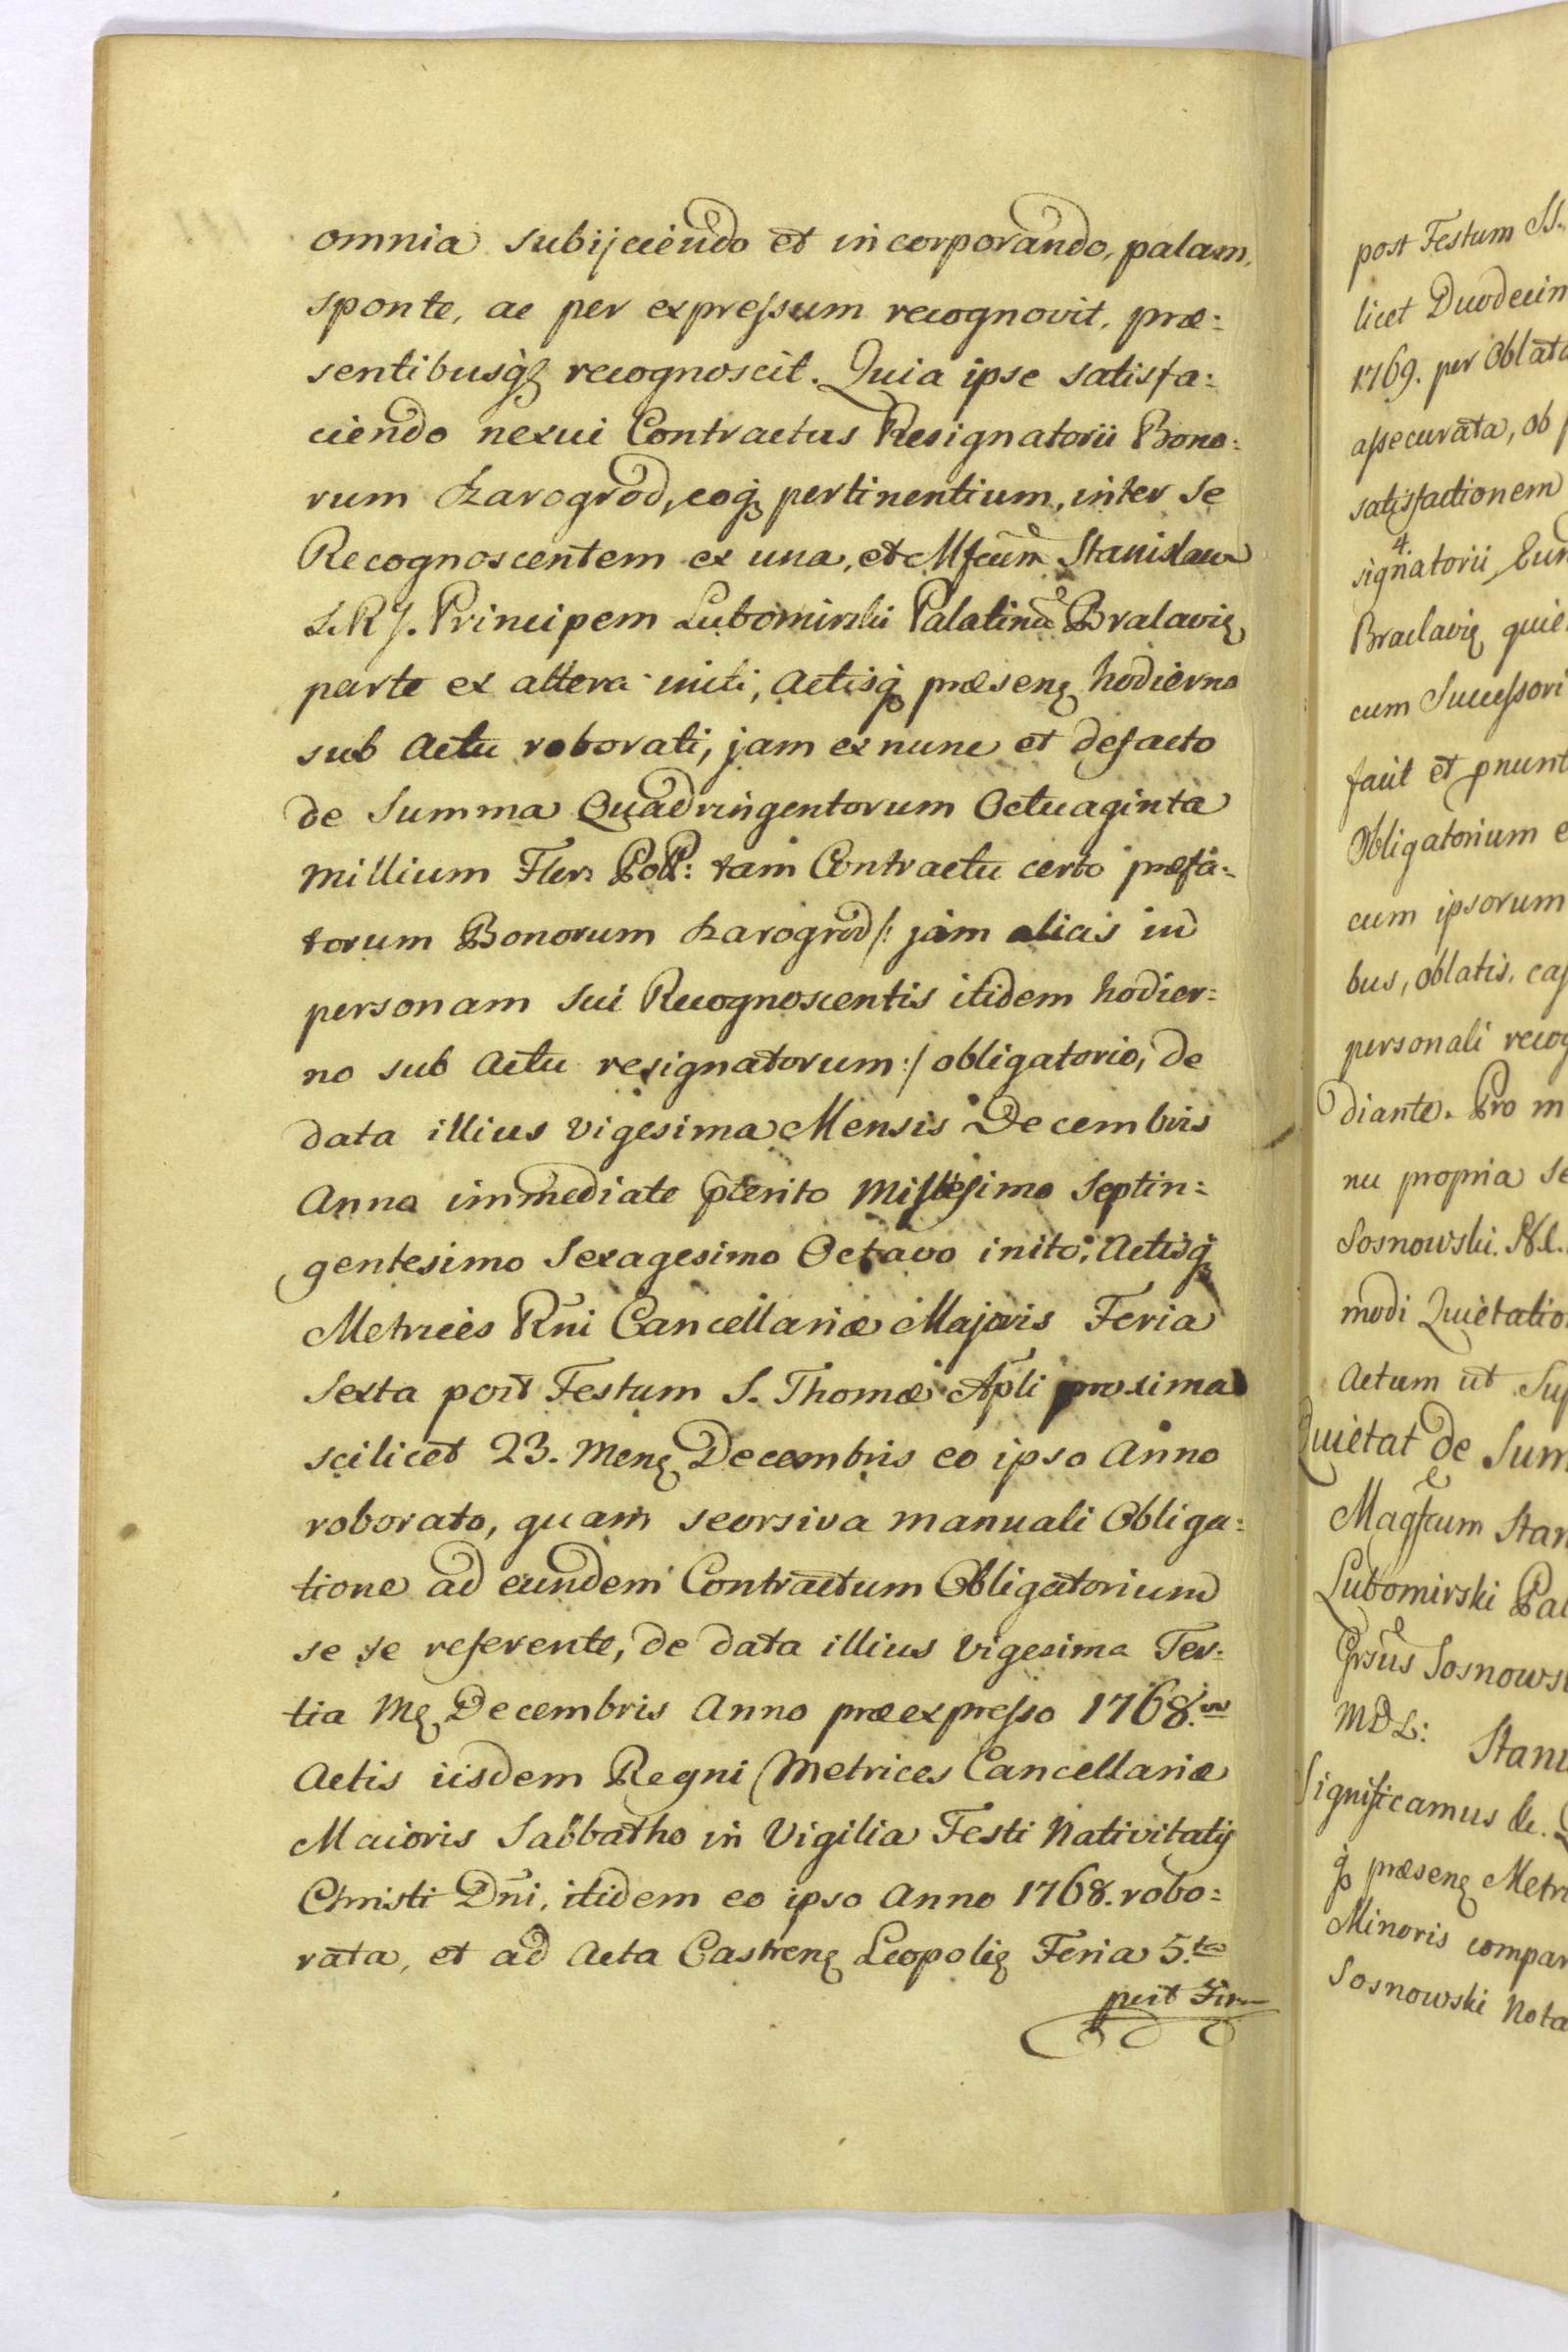 omnia subijciendo et incorporando, palam,
sponte, ac per expressum recognovit, præ:
sentibusq3 recognoscit. Quia ipse satisfa:
ciendo nexui Contractus Resignatorii Bono:
rum Szarogrod, eoq3 pertinentium, inter se
Recognoscentem ex una, et Mfcum Stanislaum
S.R.J. Principem Lubomirski Palatinũ Bralaviæ
parte ex altera initi, Actisq3 præsenę hodierno
sub Actu roborati, jam ex nunc et defacto
de Summa Quadringentorum Octuaginta
Millium Flor: Poll: tam Contractu certo præfa:
torum Bonorum Szarogrod /: jam alias in
personam sui Recognoscentis itidem hodier:
no sub Actu resignatorum :/ obligatorio, de
data illius vigesima Mensis Decembris
Anno immediate pterito Millesimo Septin:
gentesimo Sexagesimo Octavo inito, Actisq3
Metrices Rñi Cancellariæ Majoris Feria
Sexta post Festum S. Thomæ Apli proxima
scilicet 23. Menę Decembris eo ipso Anno
roborato, quam seorsiva manuali Obliga:
tione ad eundem Contractum Obligatorium
se se referente, de data illius Vigesima Ter:
tia Mę Decembris Anno præexpresso 1768.vo
Actis iisdem Regni Metrices Cancellariæ
Maioris Sabbatho in Vigilia Festi Nativitatis
Christi Dñi, itidem eo ipso Anno 1768. robo:
rata, et ad Acta Castrenę Leopolię Feria 5.ta
post
post Festum SS.
licet Duodecim
1769. per Oblata
assecurata, ob
satisfactionem
signatorii, Eun
Braclavię quie
cum Successori
facit et pnunt
Obligatorium e
cum ipsorum
bus, oblatis, cas
personali recog
diante. Pro m
nu propria se
Sosnowski. N.L.
modi Quietatio
Actum ut Sup
Quietat de Sum
Magfcum Stan
Lubomirski Pal
Grsũs Sosnowsk
MDL: Stani
Significamus &c.
q3 præsenę Metri
Minoris compar
Sosnowski Nota